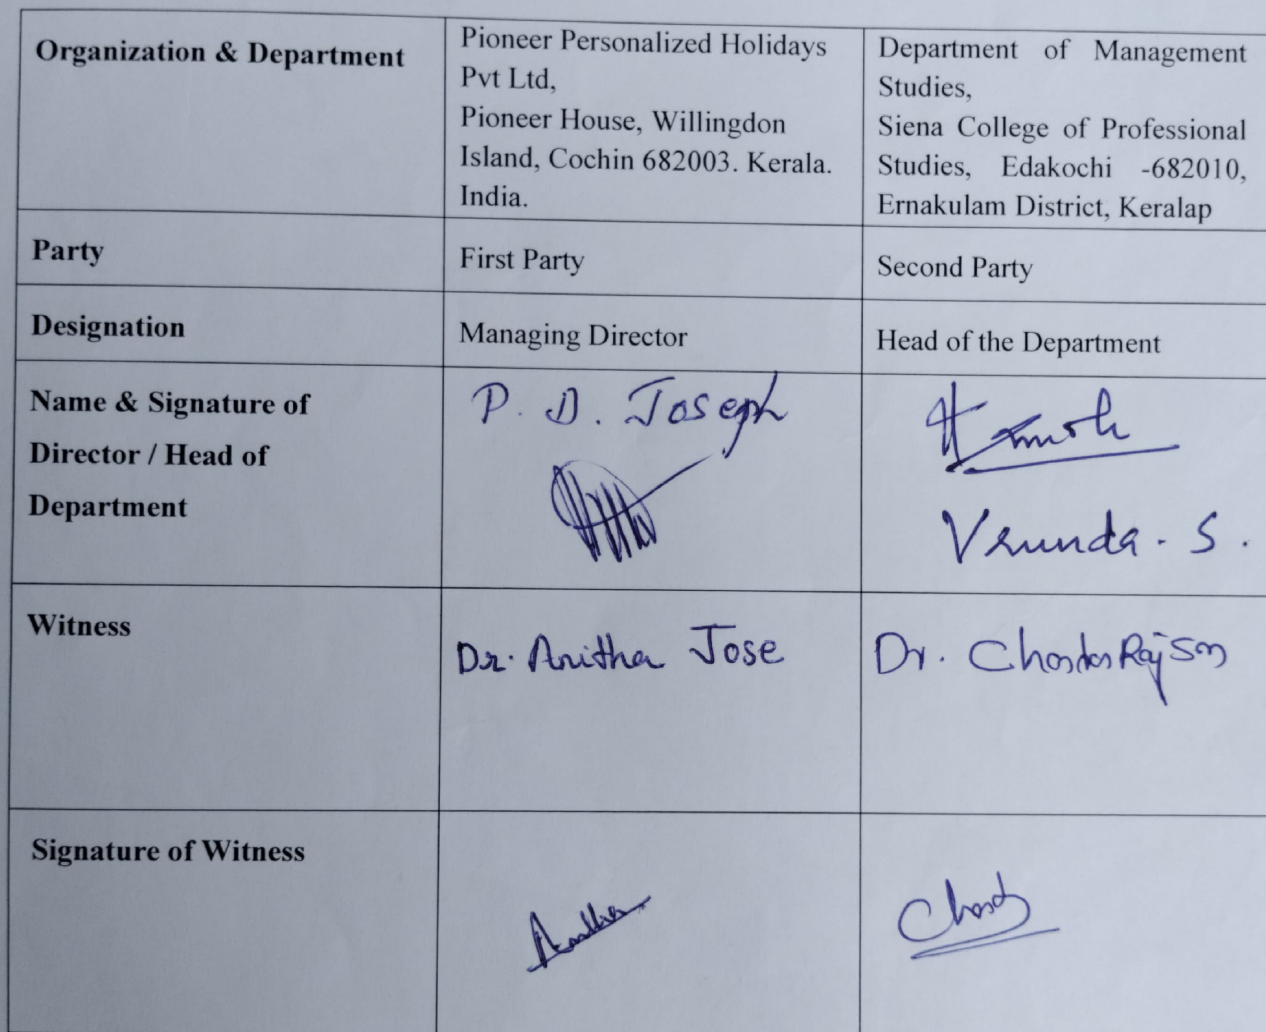 Organization & Department
Pioneer Personalized Holidays
Pvt Ltd,
Pioneer House, Willingdon
Island, Cochin 682003. Kerala.
India.
Department of Management
Studies,
Siena College of Professional
Studies, Edakochi -682010,
Ernakulam District, Keralap
Party
First Party
Second Party
Designation
Managing Director
Head of the Department
Name & Signature of
Director / Head of
Department
P. D. Joseph
Vrunda. S.
Witness
Dr. Anitha Jose
Dr.
Signature of Witness